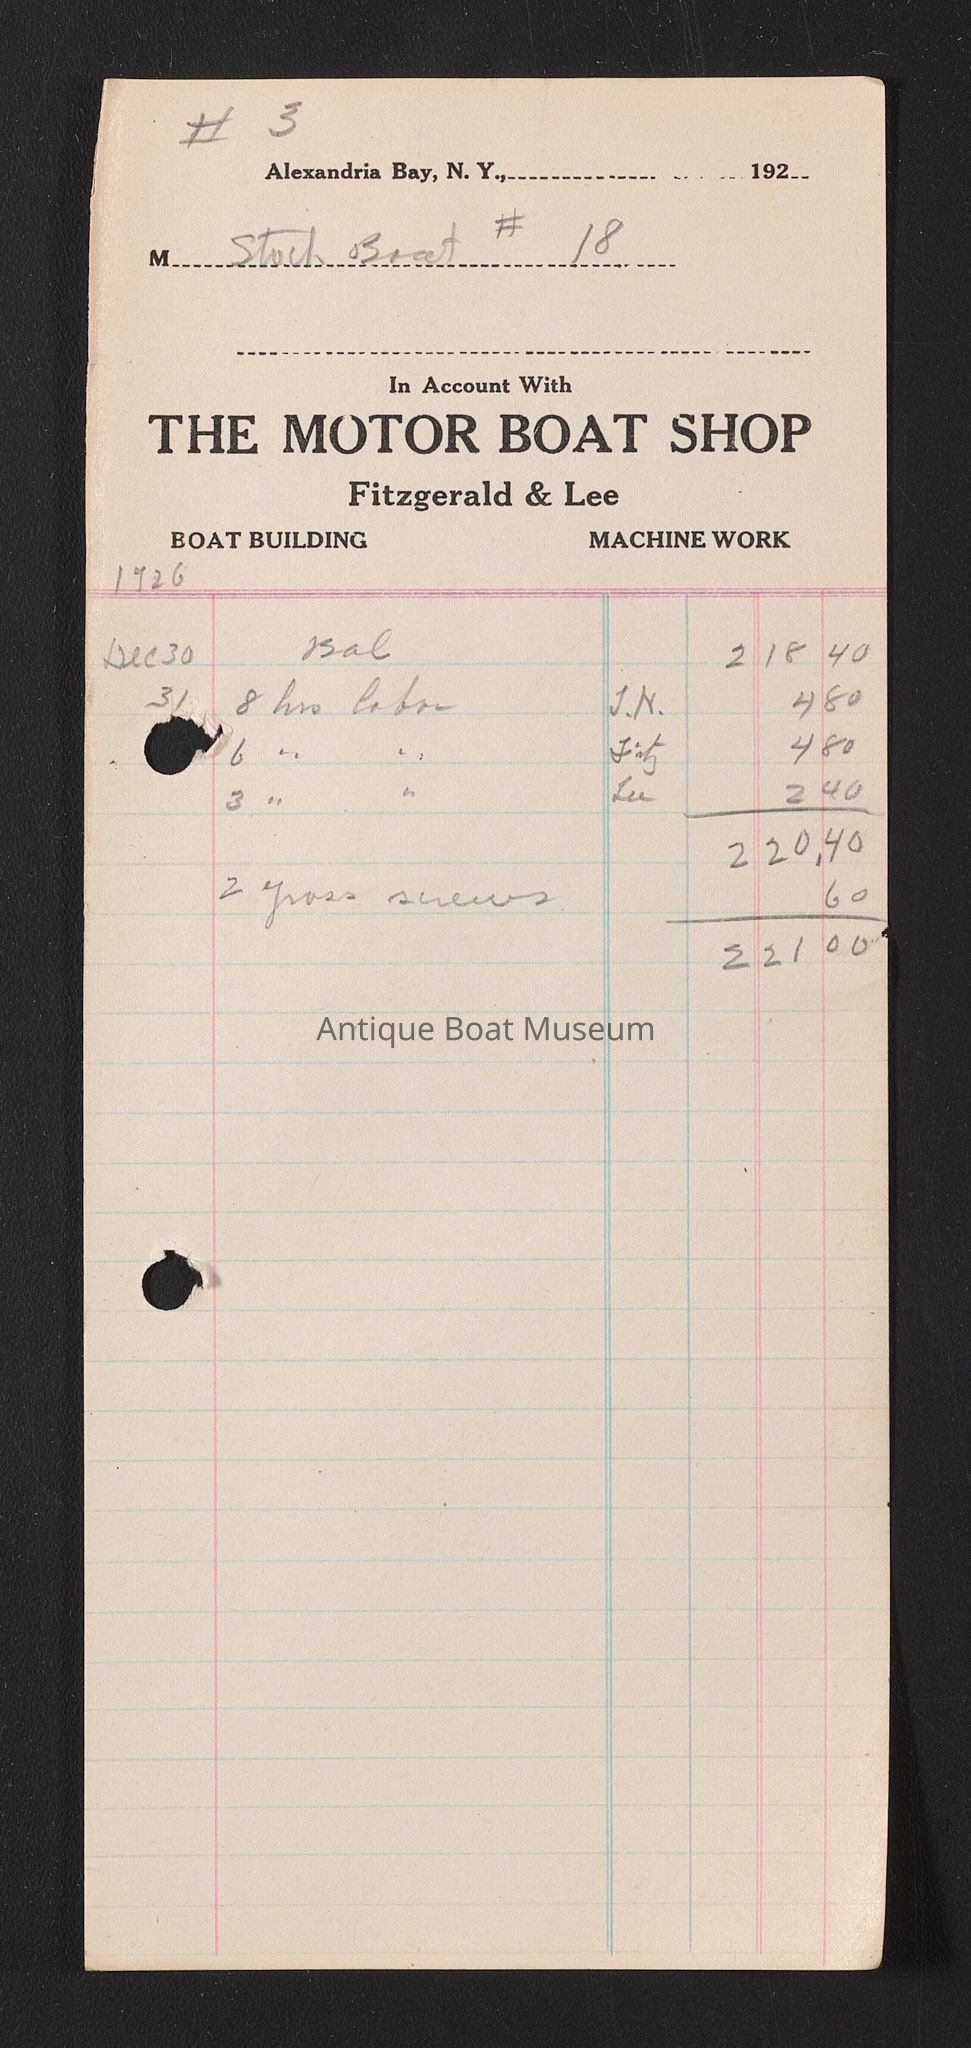 # 3
Alexandria Bay, N. Y., 192
M Stock Boat # 18
In Account With
THE MOTOR BOAT SHOP
Fitzgerald & Lee
BOAT BUILDING MACHINE WORK
1926
Dec 30 Bal 218 40
31 8 hrs labor J.H. 4 80
6 " " Fitz 4 80
3 " " Lee 2 40
220.40
2 gross screws 60
221 00
Antique Boat Museum